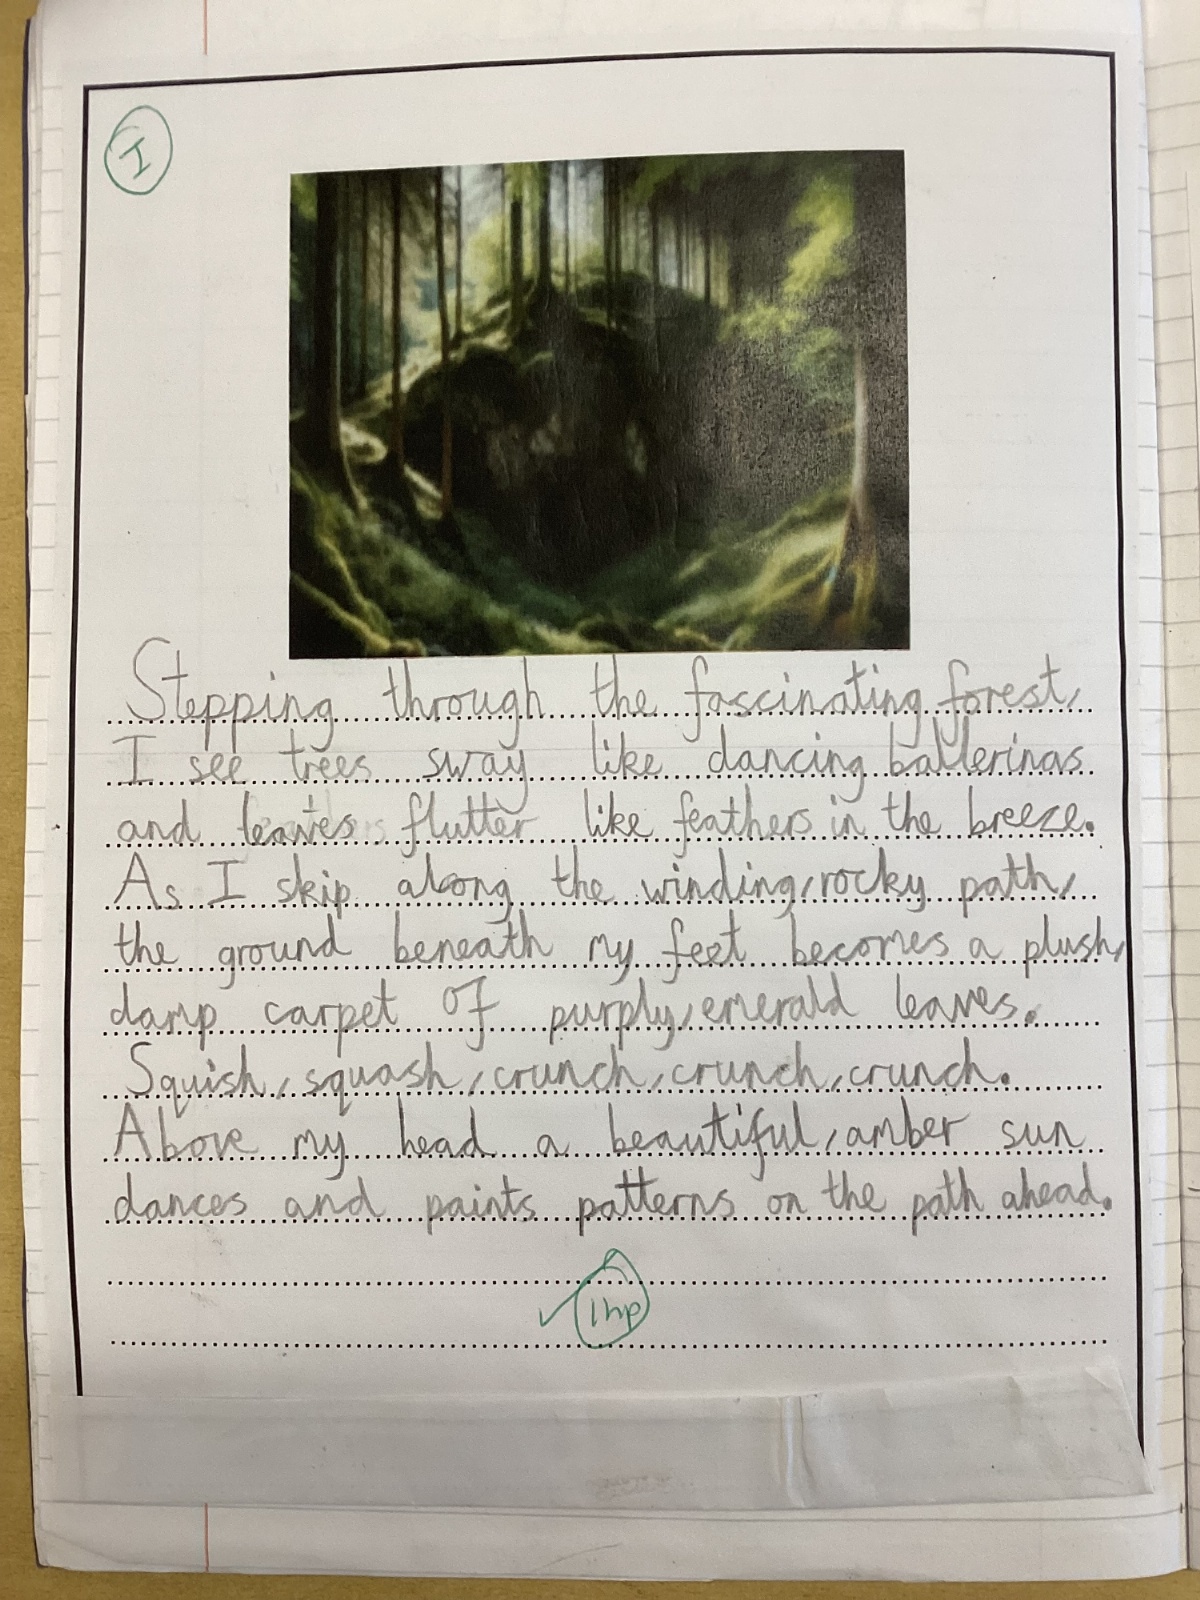 I
Stepping through the fascinating forest,
I see trees sway like dancing ballerinas
and leaves flutter like feathers in the breeze.
As I skip along the winding, rocky path,
the ground beneath my feet becomes a plush,
damp carpet of purply, emerald leaves.
Squish, squash, crunch, crunch, crunch.
Above my head a beautiful, amber sun
dances and paints patterns on the path ahead.
1hp